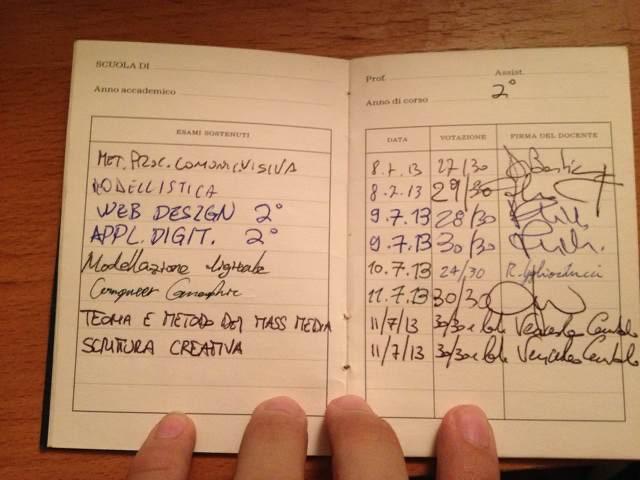 SCUOLA DI
Anno accademico
ESAMI SOSTENUTI
MET. PROC. COMUNIC VISIVA
MODELLISTICA
WEB DESIGN 2°
APPL. DIGIT. 2°
Modellazione digitale
Computer Graphic
TEORIA E METODO DEI MASS MEDIA
SCRITTURA CREATIVA
Prof. Assist.
Anno di corso 2°
DATA VOTAZIONE FIRMA DEL DOCENTE
8.7.13 27/30
8.7.13 29/30
9.7.13 28/30
9.7.13 30/30
10.7.13 24/30 R.
11.7.13 30/30
11/7/13 30/30 e lode
11/7/13 30/30 e lode